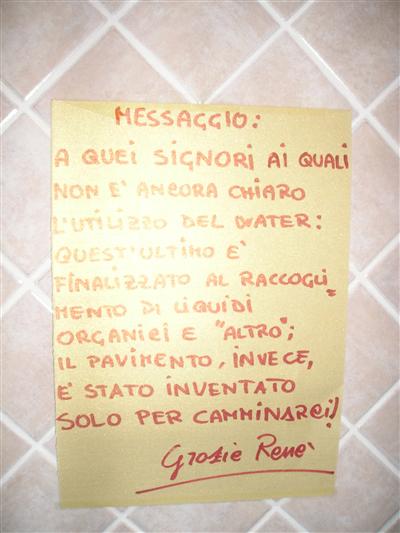 MESSAGGIO:
A QUEI SIGNORI AI QUALI
NON E' ANCORA CHIARO
L'UTILIZZO DEL WATER:
QUEST'ULTIMO E'
FINALIZZATO AL RACCOGLI=
MENTO DI LIQUIDI
ORGANICI E "ALTRO";
IL PAVIMENTO, INVECE,
E' STATO INVENTATO
SOLO PER CAMMINARCI!
Grazie Rene'